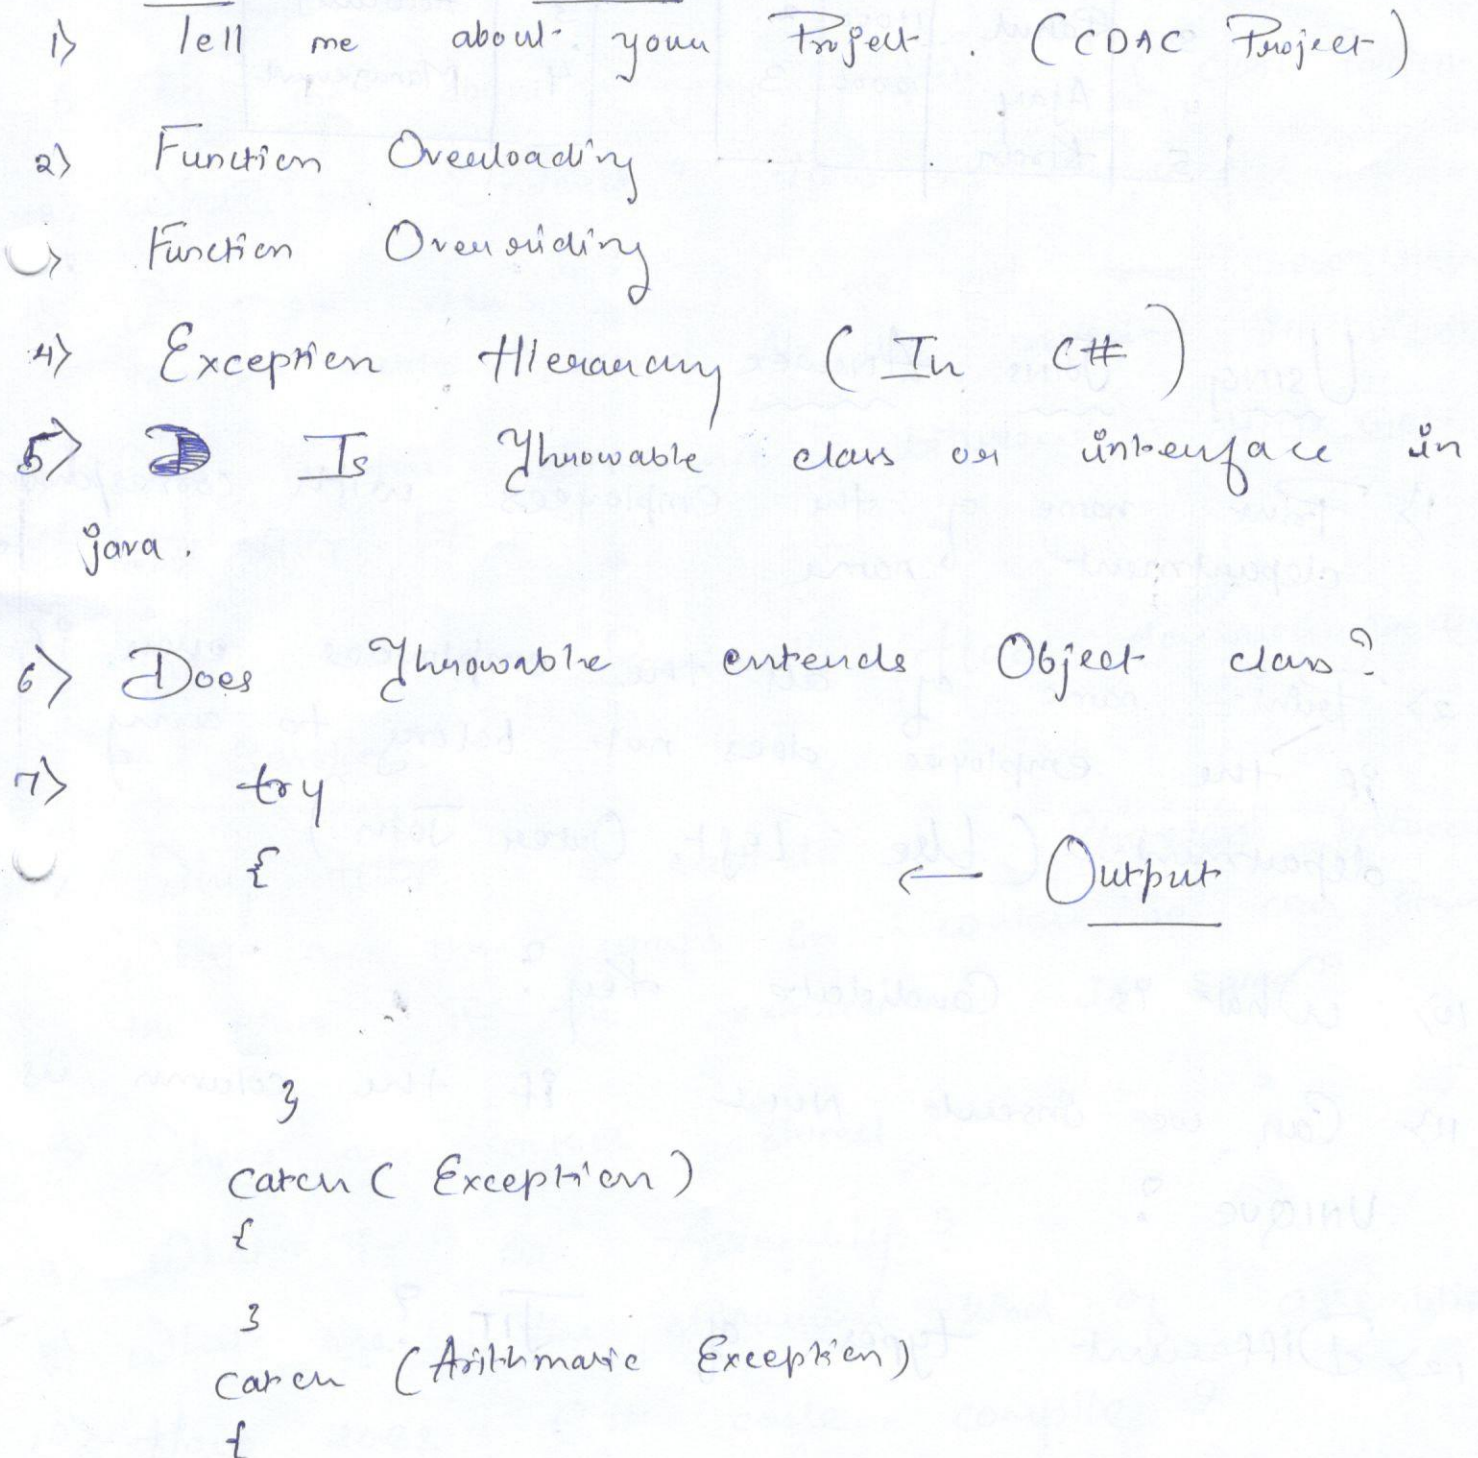 1) Tell me about your Project. (CDAC Project)
2) Function Overloading
) Function Overriding
4) Exception Hierarchy (In C#)
5) Is Throwable class or interface in
java.
6) Does Throwable extends Object class?
7) try
{ ← Output
}
catch ( Exception )
{
}
catch (Arithmatic Exception)
{